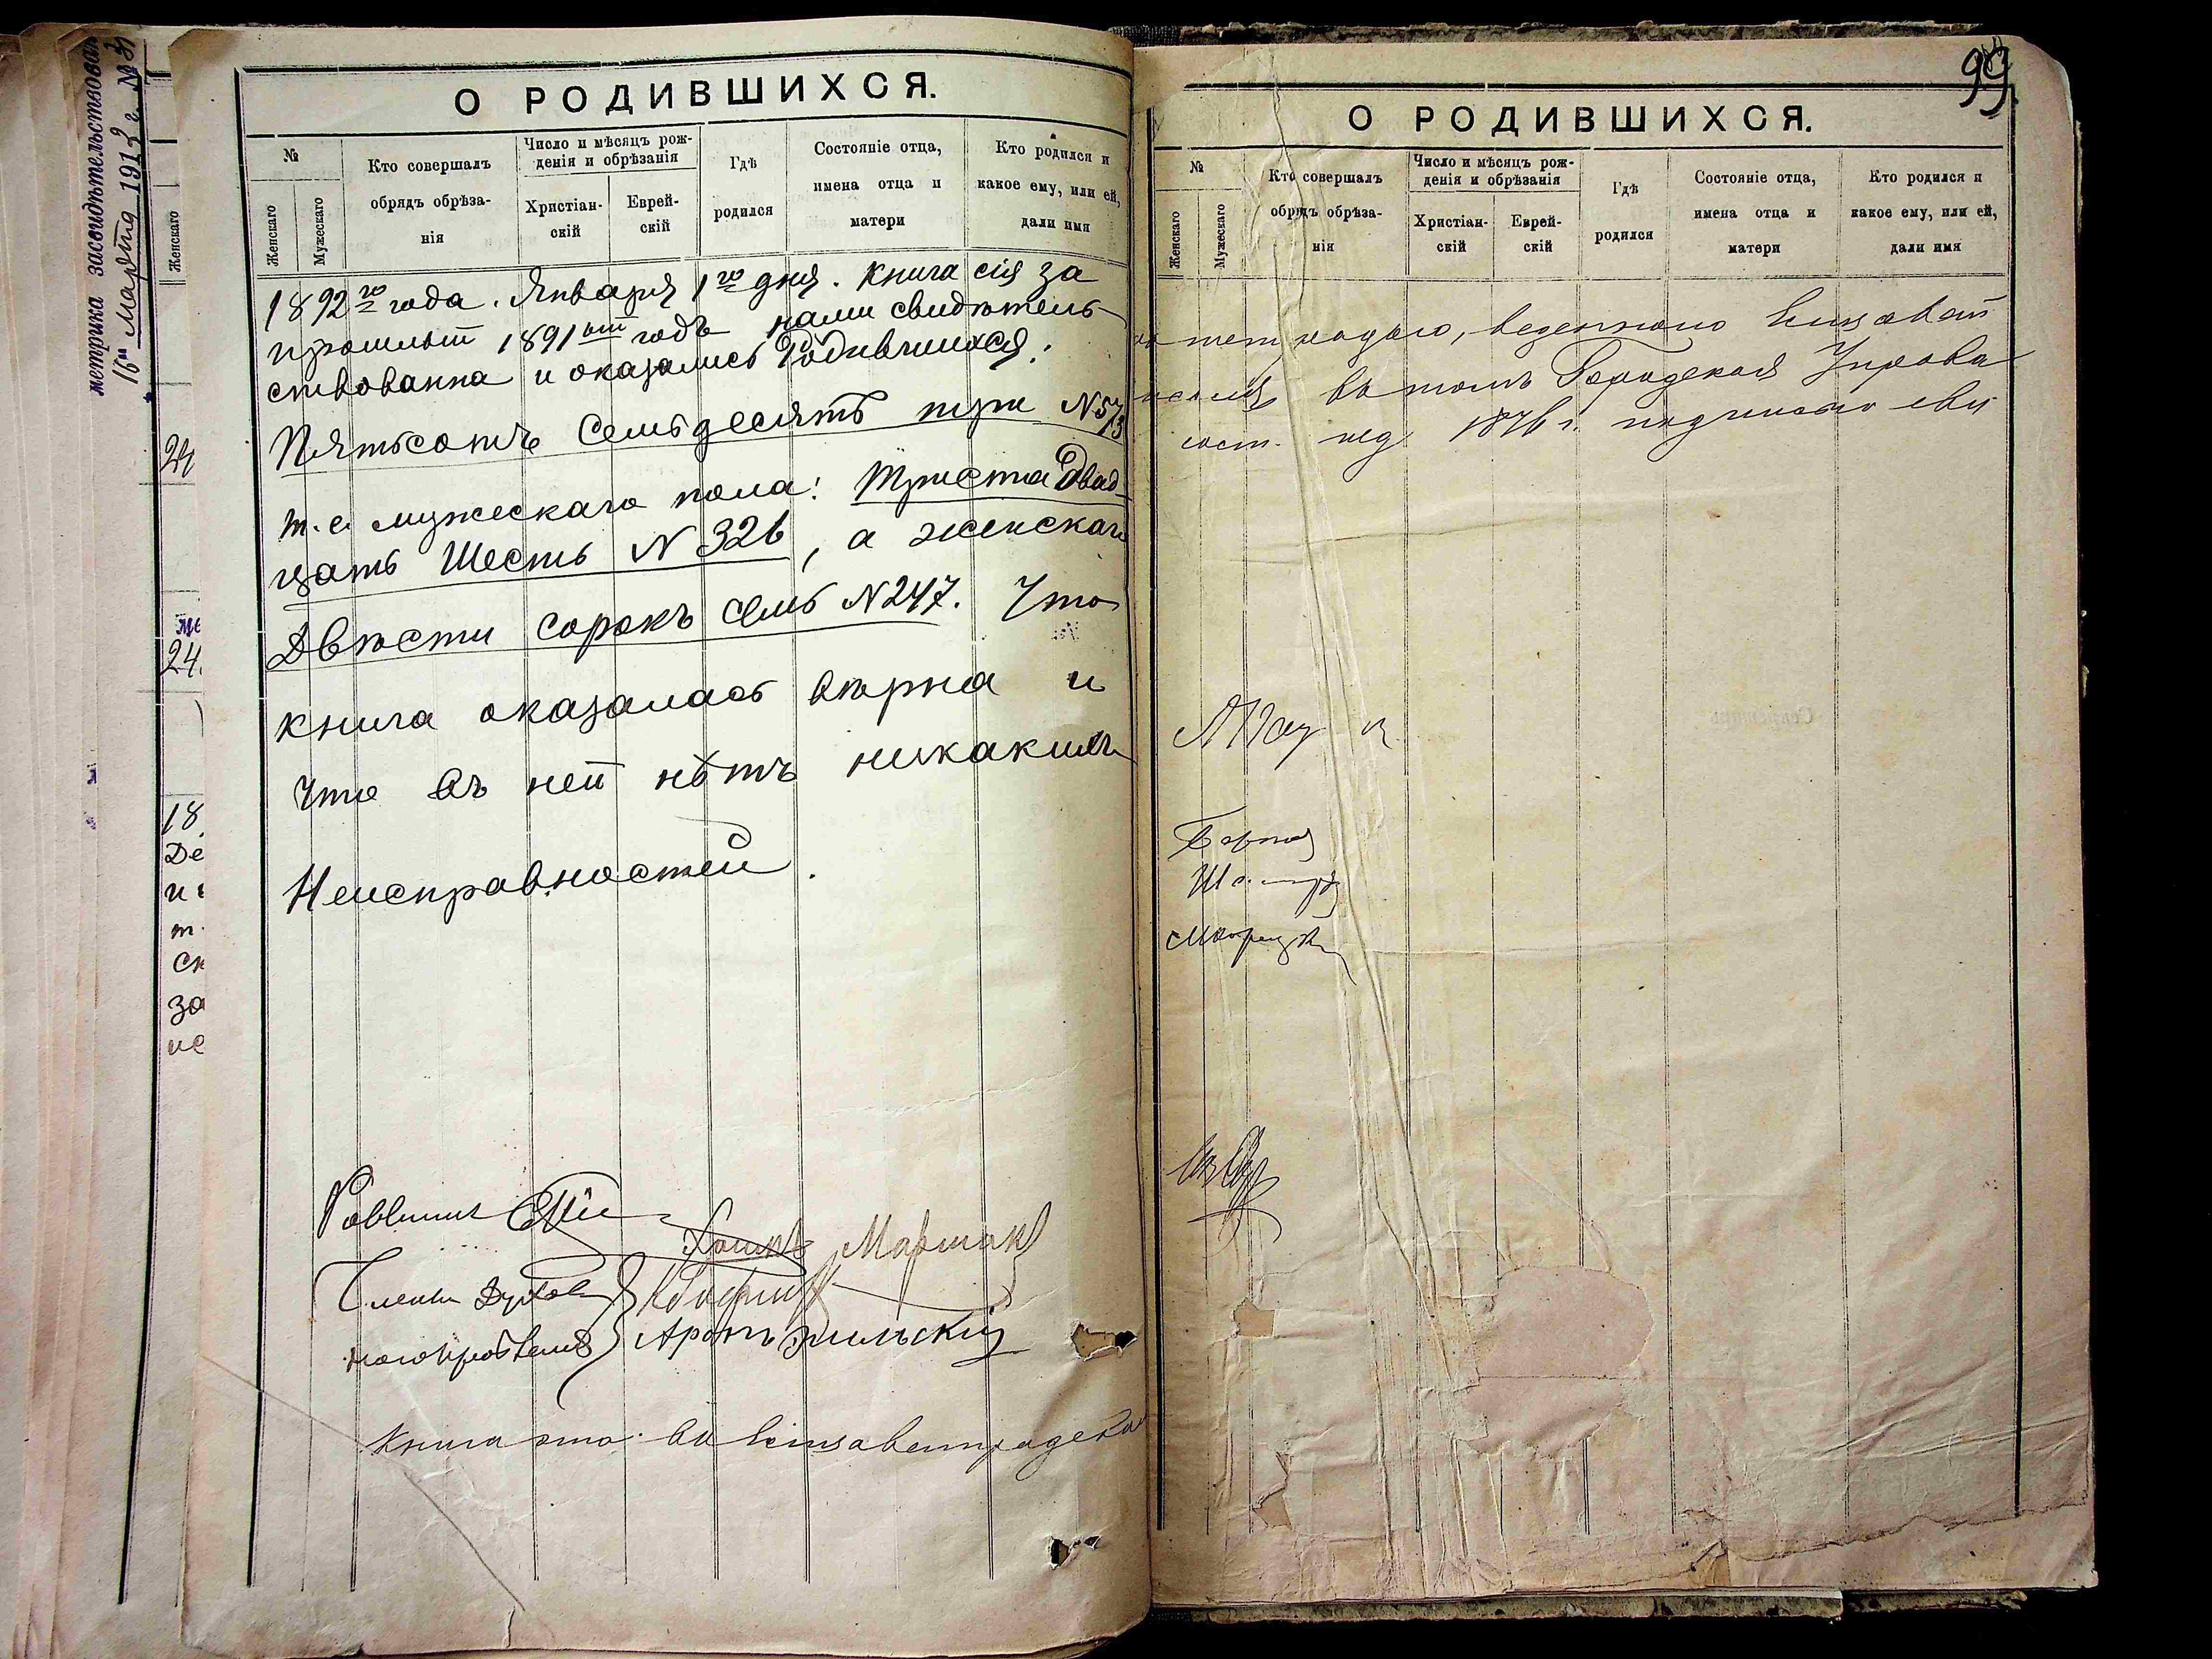 метрика засвидѣтельствован
16го Марта 1913 г. №
Женскаго
24
24
18
Де
и
т.
ск
за
не
О РОДИВШИХСЯ.
№
Женскаго
Мужескаго
Кто совершалъ
обрядъ обрѣза-
нія
Число и мѣсяцъ рож-
денія и обрѣзанія
Христіан-
скій
Еврей-
скій
Гдѣ
родился
Состояніе отца,
имена отца и
матери
Кто родился и
какое ему, или ей,
дали имя
1892го года. Января 1го дня. Книга сія за
прошлый 1891ый годъ нами свидѣтель-
ствованна и оказались Родившихся:
Пятьсотъ Семьдесятъ три N573
т.е. мужескаго пола: Триста Двад-
цать Шесть N326, а женскаго
Двѣсти сорокъ семь N247. Что
книга оказалась вѣрна и
что въ ней нѣтъ никакихъ
Неисправностей.
Раввинъ
Маршакъ
Члены Духов
наго Правленія
Аронъ Вильскій
Книга эта въ Елисаветградско
99
О РОДИВШИХСЯ.
№
Женскаго
Мужескаго
Кто совершалъ
обрядъ обрѣза-
нія
Число и мѣсяцъ рож-
денія и обрѣзанія
Христіан-
скій
Еврей-
скій
Гдѣ
родился
Состояніе отца,
имена отца и
матери
Кто родился и
какое ему, или ей,
дали имя
Елисавет
въ томъ Городская Управа
1876 г.